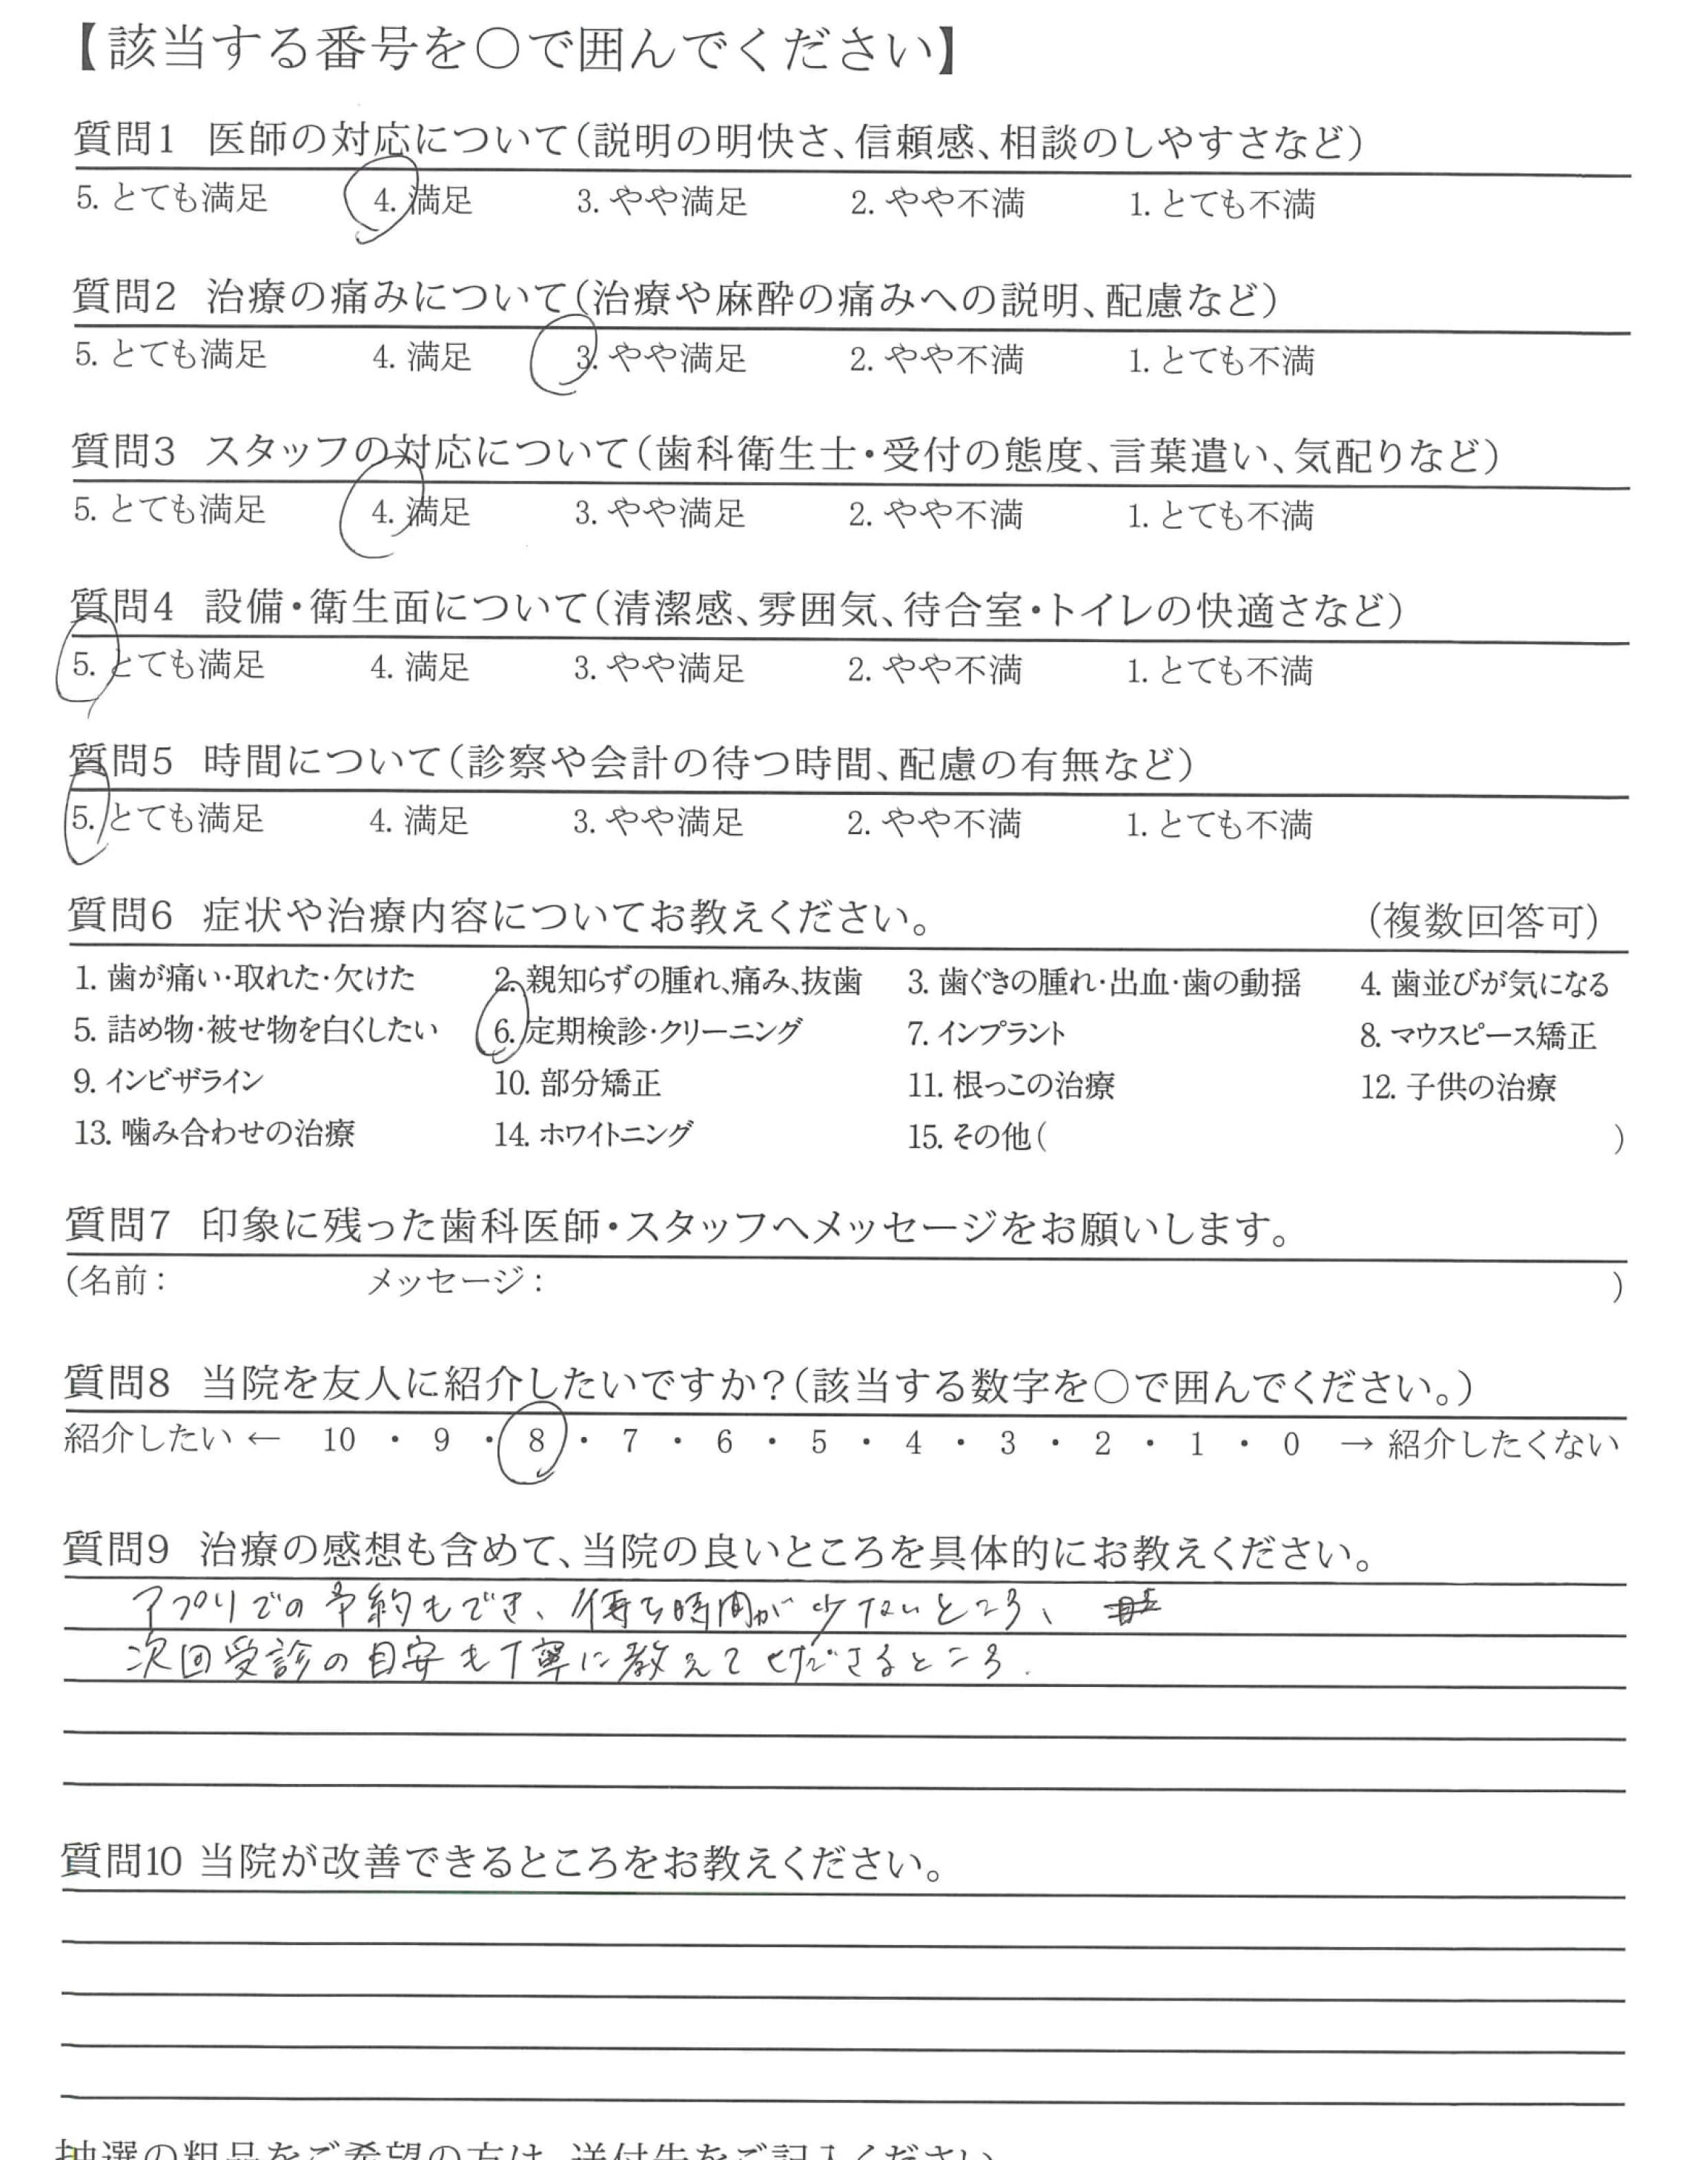 【該当する番号を○で囲んでください】
質問1 医師の対応について(説明の明快さ、信頼感、相談のしやすさなど)
5. とても満足 4. 満足 3. やや満足 2. やや不満 1. とても不満
質問2 治療の痛みについて(治療や麻酔の痛みへの説明、配慮など)
5. とても満足 4. 満足 3. やや満足 2. やや不満 1. とても不満
質問3 スタッフの対応について(歯科衛生士・受付の態度、言葉遣い、気配りなど)
5. とても満足 4. 満足 3. やや満足 2. やや不満 1. とても不満
質問4 設備・衛生面について(清潔感、雰囲気、待合室・トイレの快適さなど)
5. とても満足 4. 満足 3. やや満足 2. やや不満 1. とても不満
質問5 時間について(診察や会計の待つ時間、配慮の有無など)
5. とても満足 4. 満足 3. やや満足 2. やや不満 1. とても不満
質問6 症状や治療内容についてお教えください。 (複数回答可)
1. 歯が痛い・取れた・欠けた 2. 親知らずの腫れ、痛み、抜歯 3. 歯ぐきの腫れ・出血・歯の動揺 4. 歯並びが気になる
5. 詰め物・被せ物を白くしたい 6. 定期検診・クリーニング 7. インプラント 8. マウスピース矯正
9. インビザライン 10. 部分矯正 11. 根っこの治療 12. 子供の治療
13. 噛み合わせの治療 14. ホワイトニング 15. その他( )
質問7 印象に残った歯科医師・スタッフへメッセージをお願いします。
(名前: メッセージ: )
質問8 当院を友人に紹介したいですか?(該当する数字を○で囲んでください。)
紹介したい ← 10 ・ 9 ・ 8 ・ 7 ・ 6 ・ 5 ・ 4 ・ 3 ・ 2 ・ 1 ・ 0 → 紹介したくない
質問9 治療の感想も含めて、当院の良いところを具体的にお教えください。
アプリでの予約もでき、待ち時間が少ないところ、
次回受診の目安も丁寧に教えてくださるところ.
質問10 当院が改善できるところをお教えください。
抽選の粗品をご希望の方は、送付先をご記入ください